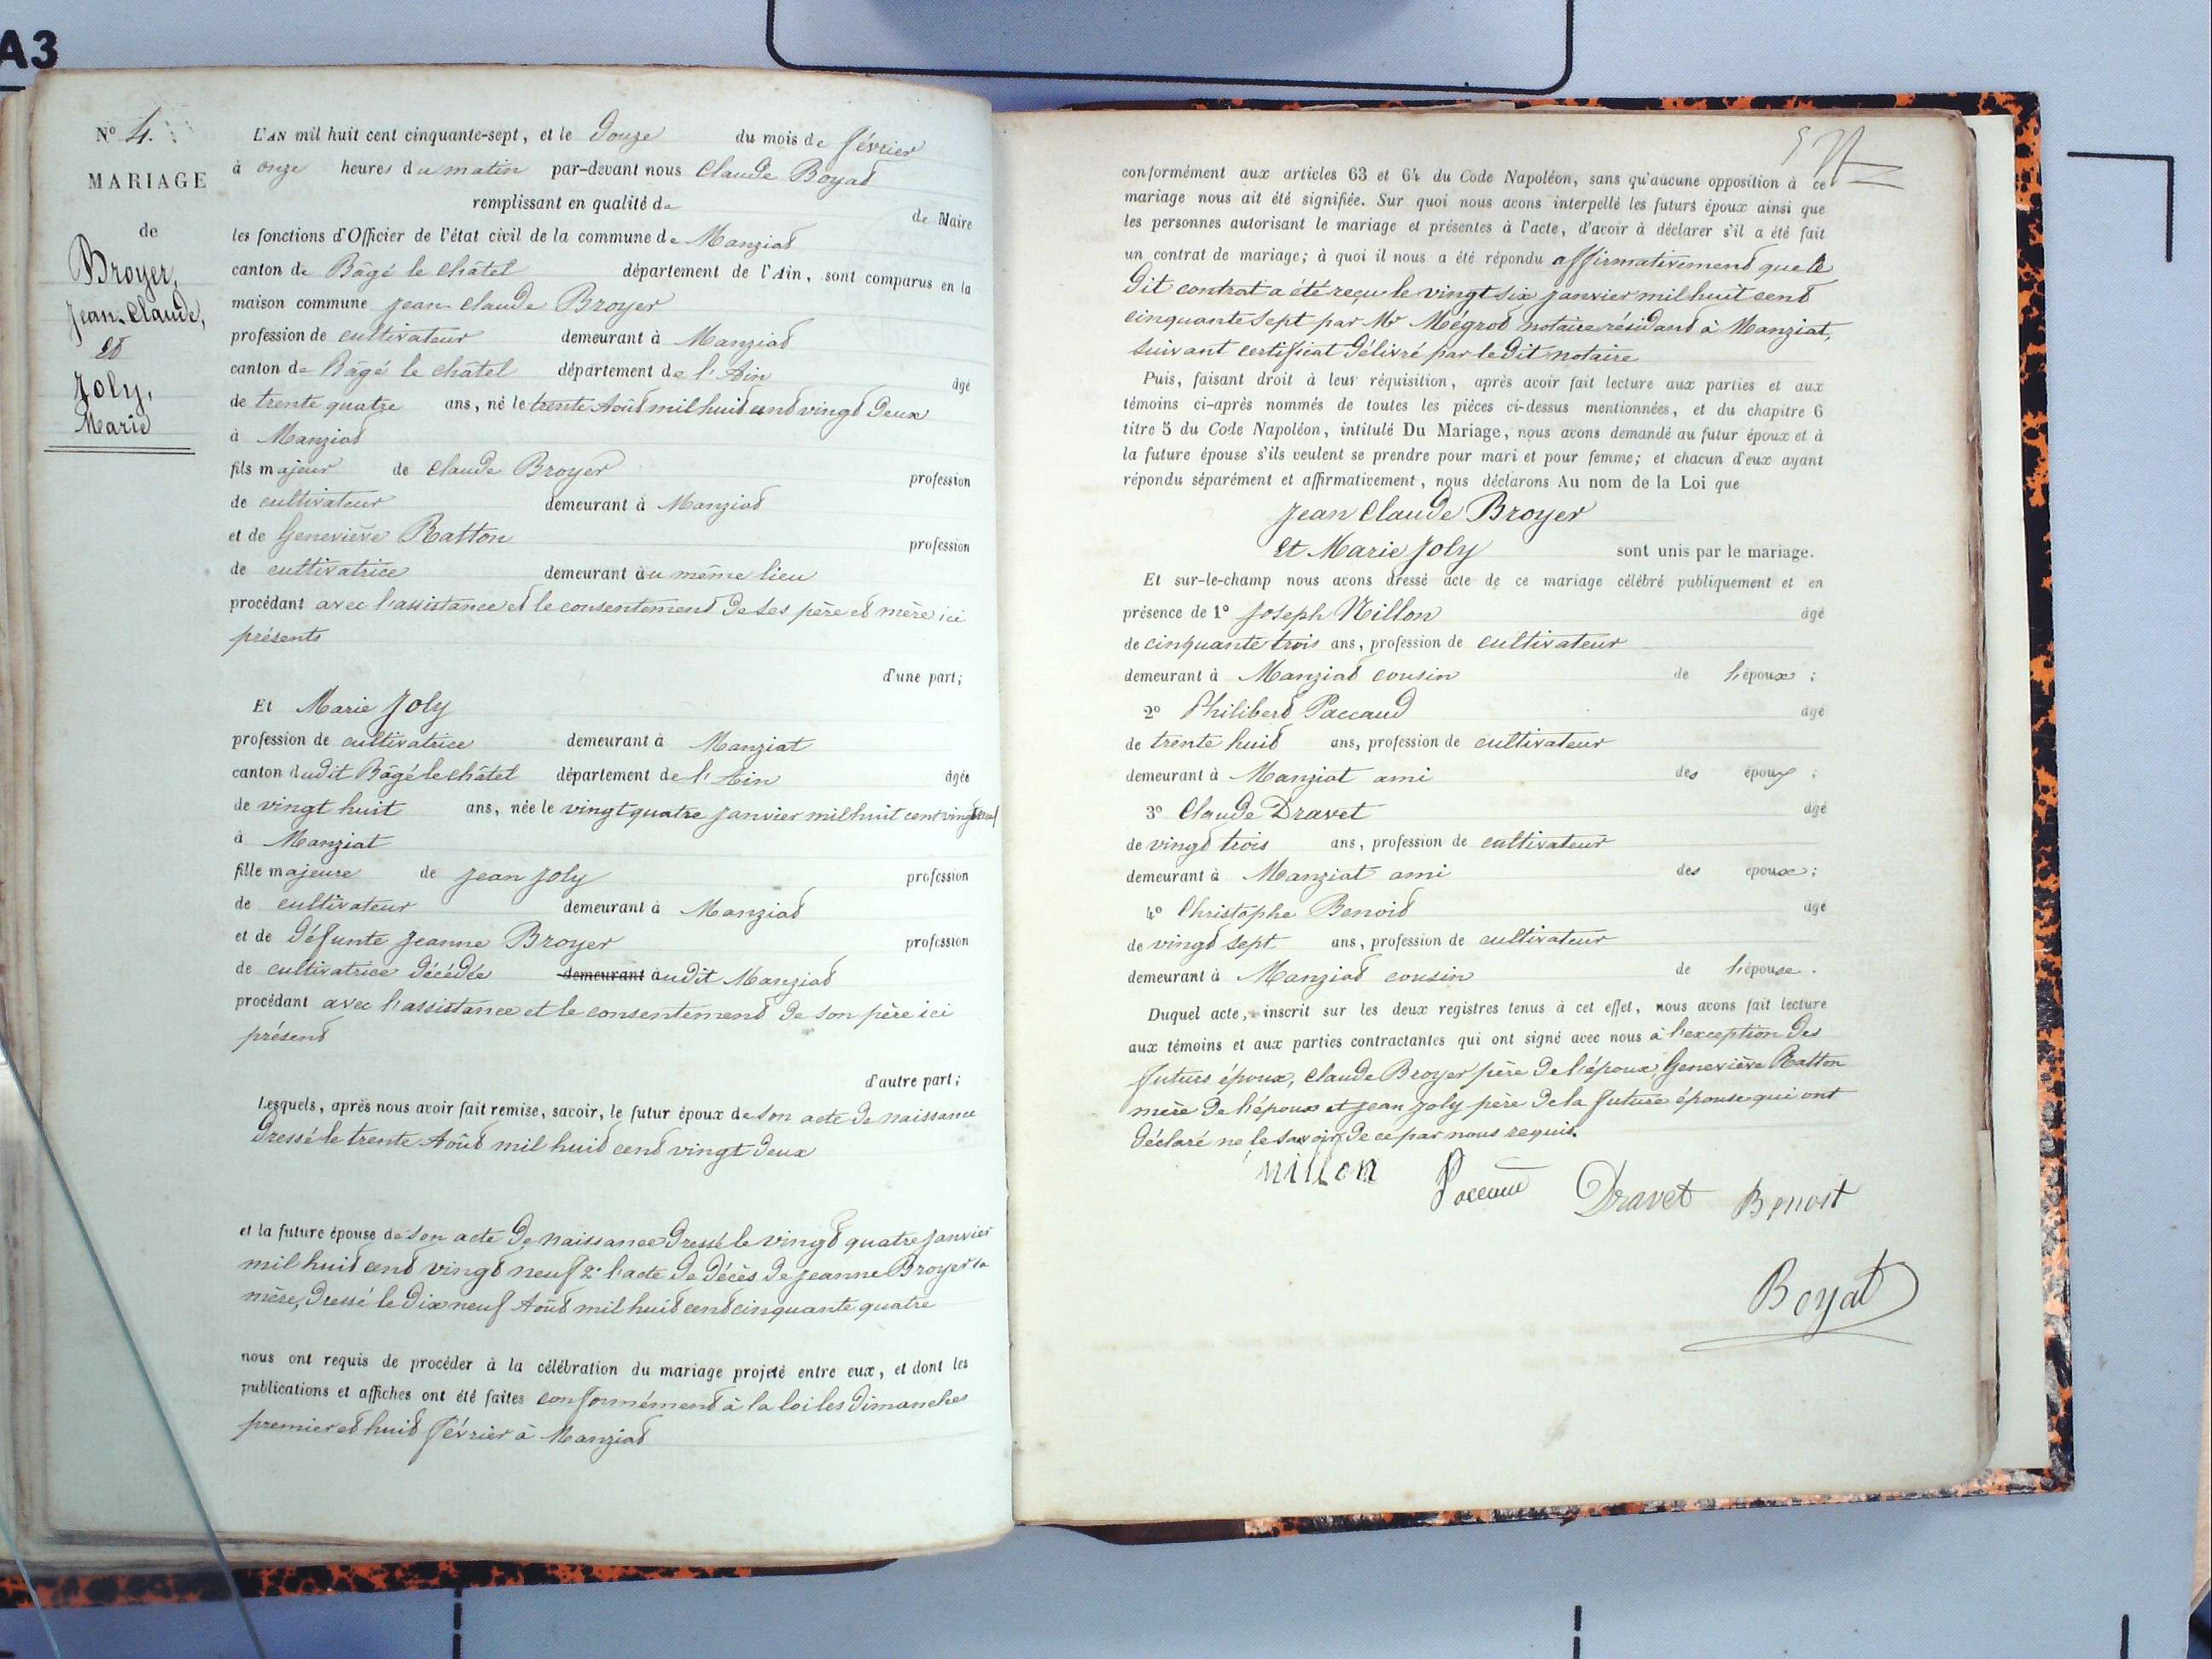 A3
N° 4.
MARIAGE
de
Broyer,
Jean-Claude,
Et
Joly,
Marie
L'AN mil huit cent cinquante-sept, et le Douze du mois de février
à onze heures du matin par-devant nous Claude Boyat
remplissant en qualité de de Maire
les fonctions d'Officier de l'état civil de la commune de Manziat
canton de Bâgé le châtel département de l'Ain, sont comparus en la
maison commune Jean Claude Broyer
profession de cultivateur demeurant à Manziat
canton de Bâgé le châtel département de l'Ain âgé
de trente quatre ans, né le trente Août mil huit cent vingt Deux
à Manziat
fils majeur de Claude Broyer profession
de cultivateur demeurant à Manziat
et de Geneviève Ratton profession
de cultivatrice demeurant au même lieu
procédant avec l'assistance et le consentement de ses père et mère ici
présents
d'une part;
Et Marie Joly
profession de cultivatrice demeurant à Manziat
canton dudit Bâgé le châtel département de l'Ain âgée
de vingt huit ans, née le vingt quatre Janvier mil huit cent vingt neuf
à Manziat
fille majeure de Jean Joly profession
de cultivateur demeurant à Manziat
et de Défunte Jeanne Broyer profession
de cultivatrice Décédée demeurant audit Manziat
procédant avec l'assistance et le consentement de son père ici
présent
d'autre part;
Lesquels, après nous avoir fait remise, savoir, le futur époux de son acte de naissance
Dressé le trente Août mil huit cent vingt Deux
et la future épouse de son acte de naissance Dressé le vingt quatre Janvier
mil huit cent vingt neuf 2° l'acte de décès de Jeanne Broyer sa
mère, Dressé le Dix neuf Août mil huit cent cinquante quatre
nous ont requis de procéder à la célébration du mariage projeté entre eux, et dont les
publications et affiches ont été faites conformément à la loi les Dimanches
premier et huit février à Manziat
conformément aux articles 63 et 64 du Code Napoléon, sans qu'aucune opposition à ce
mariage nous ait été signifiée. Sur quoi nous avons interpellé les futurs époux ainsi que
les personnes autorisant le mariage et présentes à l'acte, d'avoir à déclarer s'il a été fait
un contrat de mariage; à quoi il nous a été répondu affirmativement que le
Dit contrat a été reçu le vingt six Janvier mil huit cent
cinquante sept par Mr Mégrot notaire résidant à Manziat,
suivant certificat Délivré par le Dit notaire
Puis, faisant droit à leur réquisition, après avoir fait lecture aux parties et aux
témoins ci-après nommés de toutes les pièces ci-dessus mentionnées, et du chapitre 6
titre 5 du Code Napoléon, intitulé Du Mariage, nous avons demandé au futur époux et à
la future épouse s'ils veulent se prendre pour mari et pour femme; et chacun d'eux ayant
répondu séparément et affirmativement, nous déclarons Au nom de la Loi que
Jean Claude Broyer
Et Marie Joly sont unis par le mariage.
Et sur-le-champ nous avons dressé acte de ce mariage célébré publiquement et en
présence de 1° Joseph Nillon âgé
de cinquante trois ans, profession de cultivateur
demeurant à Manziat cousin de l'époux ;
2° Philibert Paccaud âgé
de trente huit ans, profession de cultivateur
demeurant à Manziat ami des époux ;
3° Claude Dravet âgé
de vingt trois ans, profession de cultivateur
demeurant à Manziat ami des époux ;
4° Christophe Benoit âgé
de vingt sept ans, profession de cultivateur
demeurant à Manziat cousin de l'épouse .
Duquel acte, inscrit sur les deux registres tenus à cet effet, nous avons fait lecture
aux témoins et aux parties contractantes qui ont signé avec nous à l'exception Des
futurs époux, Claude Broyer père de l'époux, Geneviève Ratton
mère de l'époux et Jean Joly père de la future épouse qui ont
déclaré ne le savoir de ce par nous requis.
nillon Paccaud Dravet Benoit
Boyat